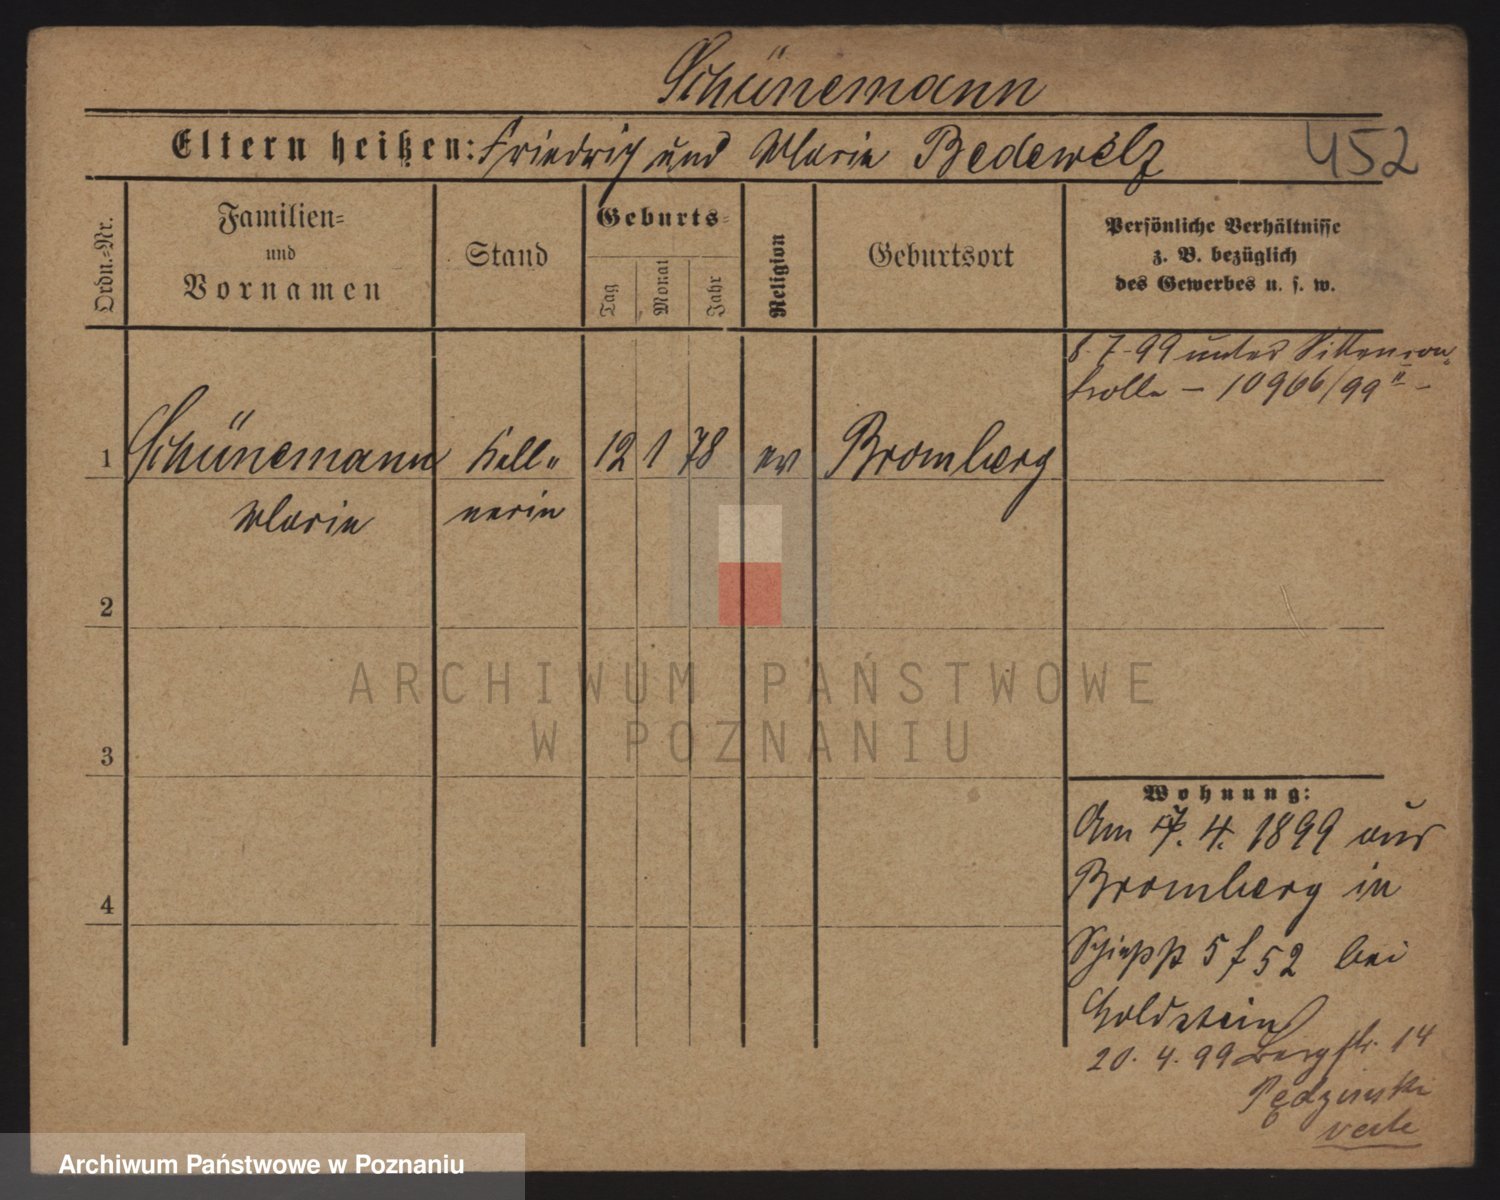 Schünemann
Eltern heißen: Friedrich und Marie Bedewelz
452
Ordn.=Nr.
Familien=
und
Vornamen
Stand
Geburts=
Tag
Monat
Jahr
Religion
Geburtsort
Persönliche Verhältnisse
z. B. bezüglich
des Gewerbes u. s. w.
8.7.99 unter Sittencon=
trolle — 10966/99 II —
1 Schünemann Kell= 12 1 78 ev Bromberg
Marie nerin
2
ARCHIWUM PAŃSTWOWE
W POZNANIU
3
Wohnung:
Am 17. 4. 1899 aus
Bromberg in
5 f 52 bei
Goldstein
20. 4. 99 Bergstr. 14
4
Archiwum Państwowe w Poznaniu